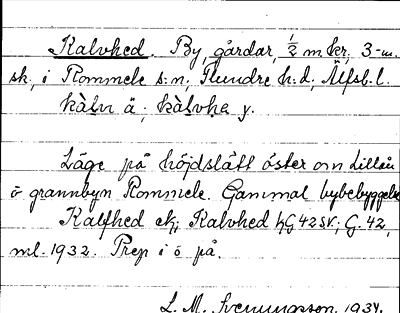 Kalvhed. By, gårdar, ½ m kr, 3-m.
sk, i Rommele s:n, Flundre h:d, Älfsb. l.
kàlv ä; kàlvhe y.
Läge på höjdslätt öster om Lillån
o grannbyn Rommele. Gammal bybebyggelse
Kalfhed ek; Kalvhed hG 42 SV; G. 42,
ml. 1932. Prep i o på.
L. M. Svenungsson 1934.